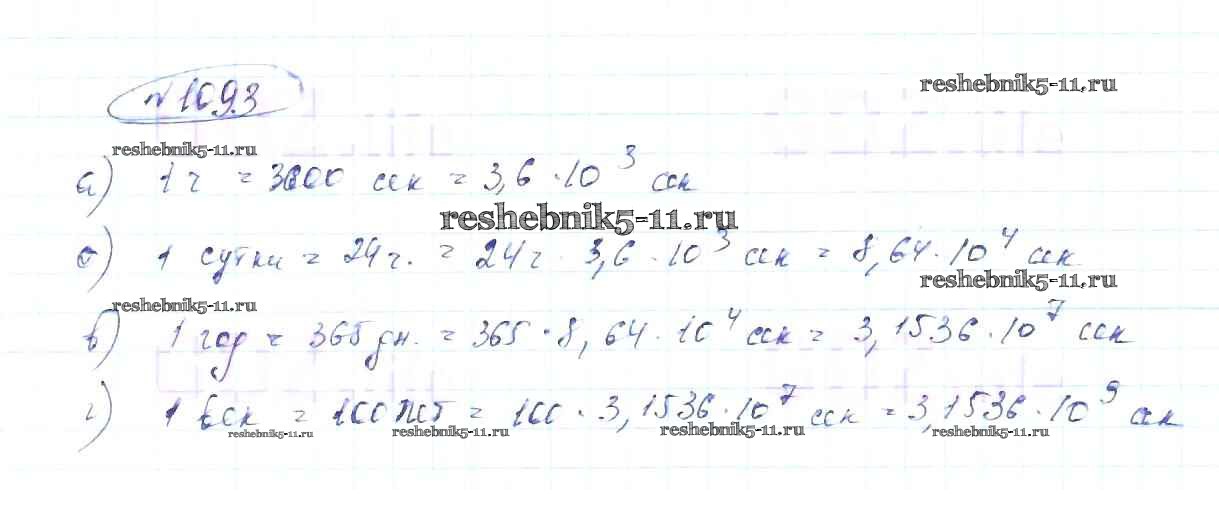 №1093
reshebnik5-11.ru
reshebnik5-11.ru
а) 1 ч = 3600 сек = 3,6 · 10³ сек
reshebnik5-11.ru
б) 1 сутки = 24 ч. = 24 ч · 3,6 · 10³ сек = 8,64 · 10⁴ сек
reshebnik5-11.ru
reshebnik5-11.ru
в) 1 год = 365 дн. = 365 · 8,64 · 10⁴ сек = 3,1536 · 10⁷ сек
г) 1 век = 100 лет = 100 · 3,1536 · 10⁷ сек = 3,1536 · 10⁹ сек
reshebnik5-11.ru
reshebnik5-11.ru
reshebnik5-11.ru